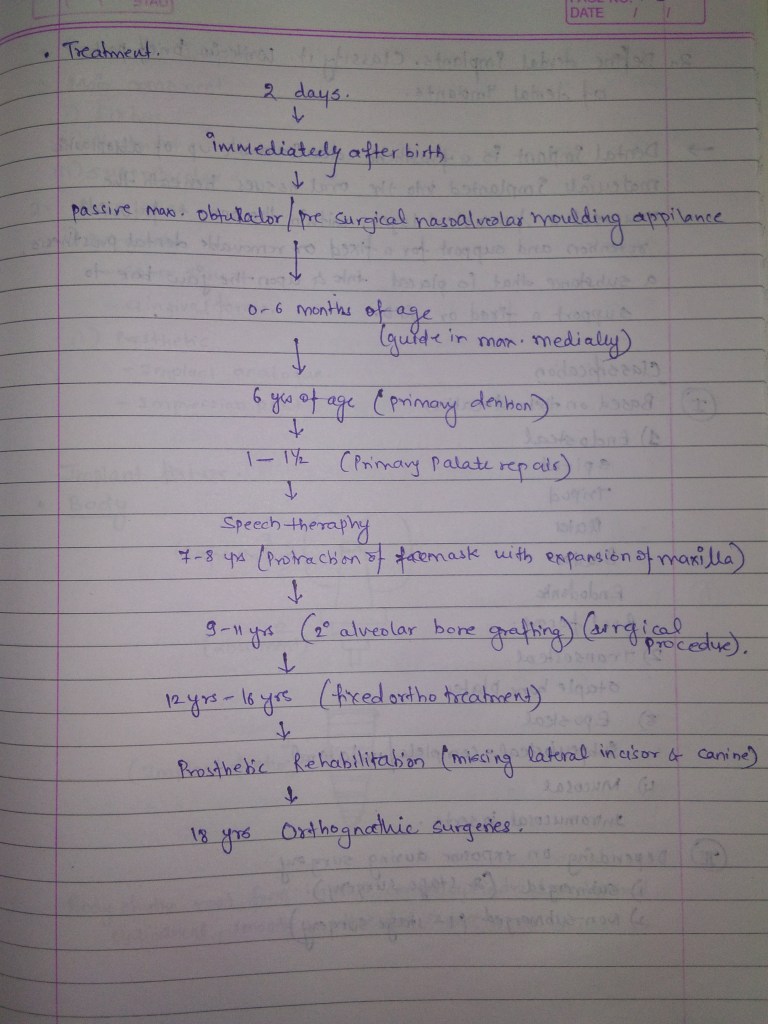 DATE / /
• Treatment.
2 days.
↓
immediately after birth
↓
passive max. obturator / pre surgical nasoalveolar moulding appilance
↓
0-6 months of age
(guide in max. medially)
↓
6 yrs of age (primary dention)
↓
1 - 1½ (Primary Palate repair)
↓
Speech theraphy
7-8 yrs (Protraction of facemask with expansion of maxilla)
↓
9-11 yrs (2° alveolar bone grafting) (surgical
procedure).
↓
12 yrs - 16 yrs (fixed ortho treatment)
↓
Prosthetic Rehabilitation (missing lateral incisor & canine)
↓
18 yrs Orthognathic surgeries.